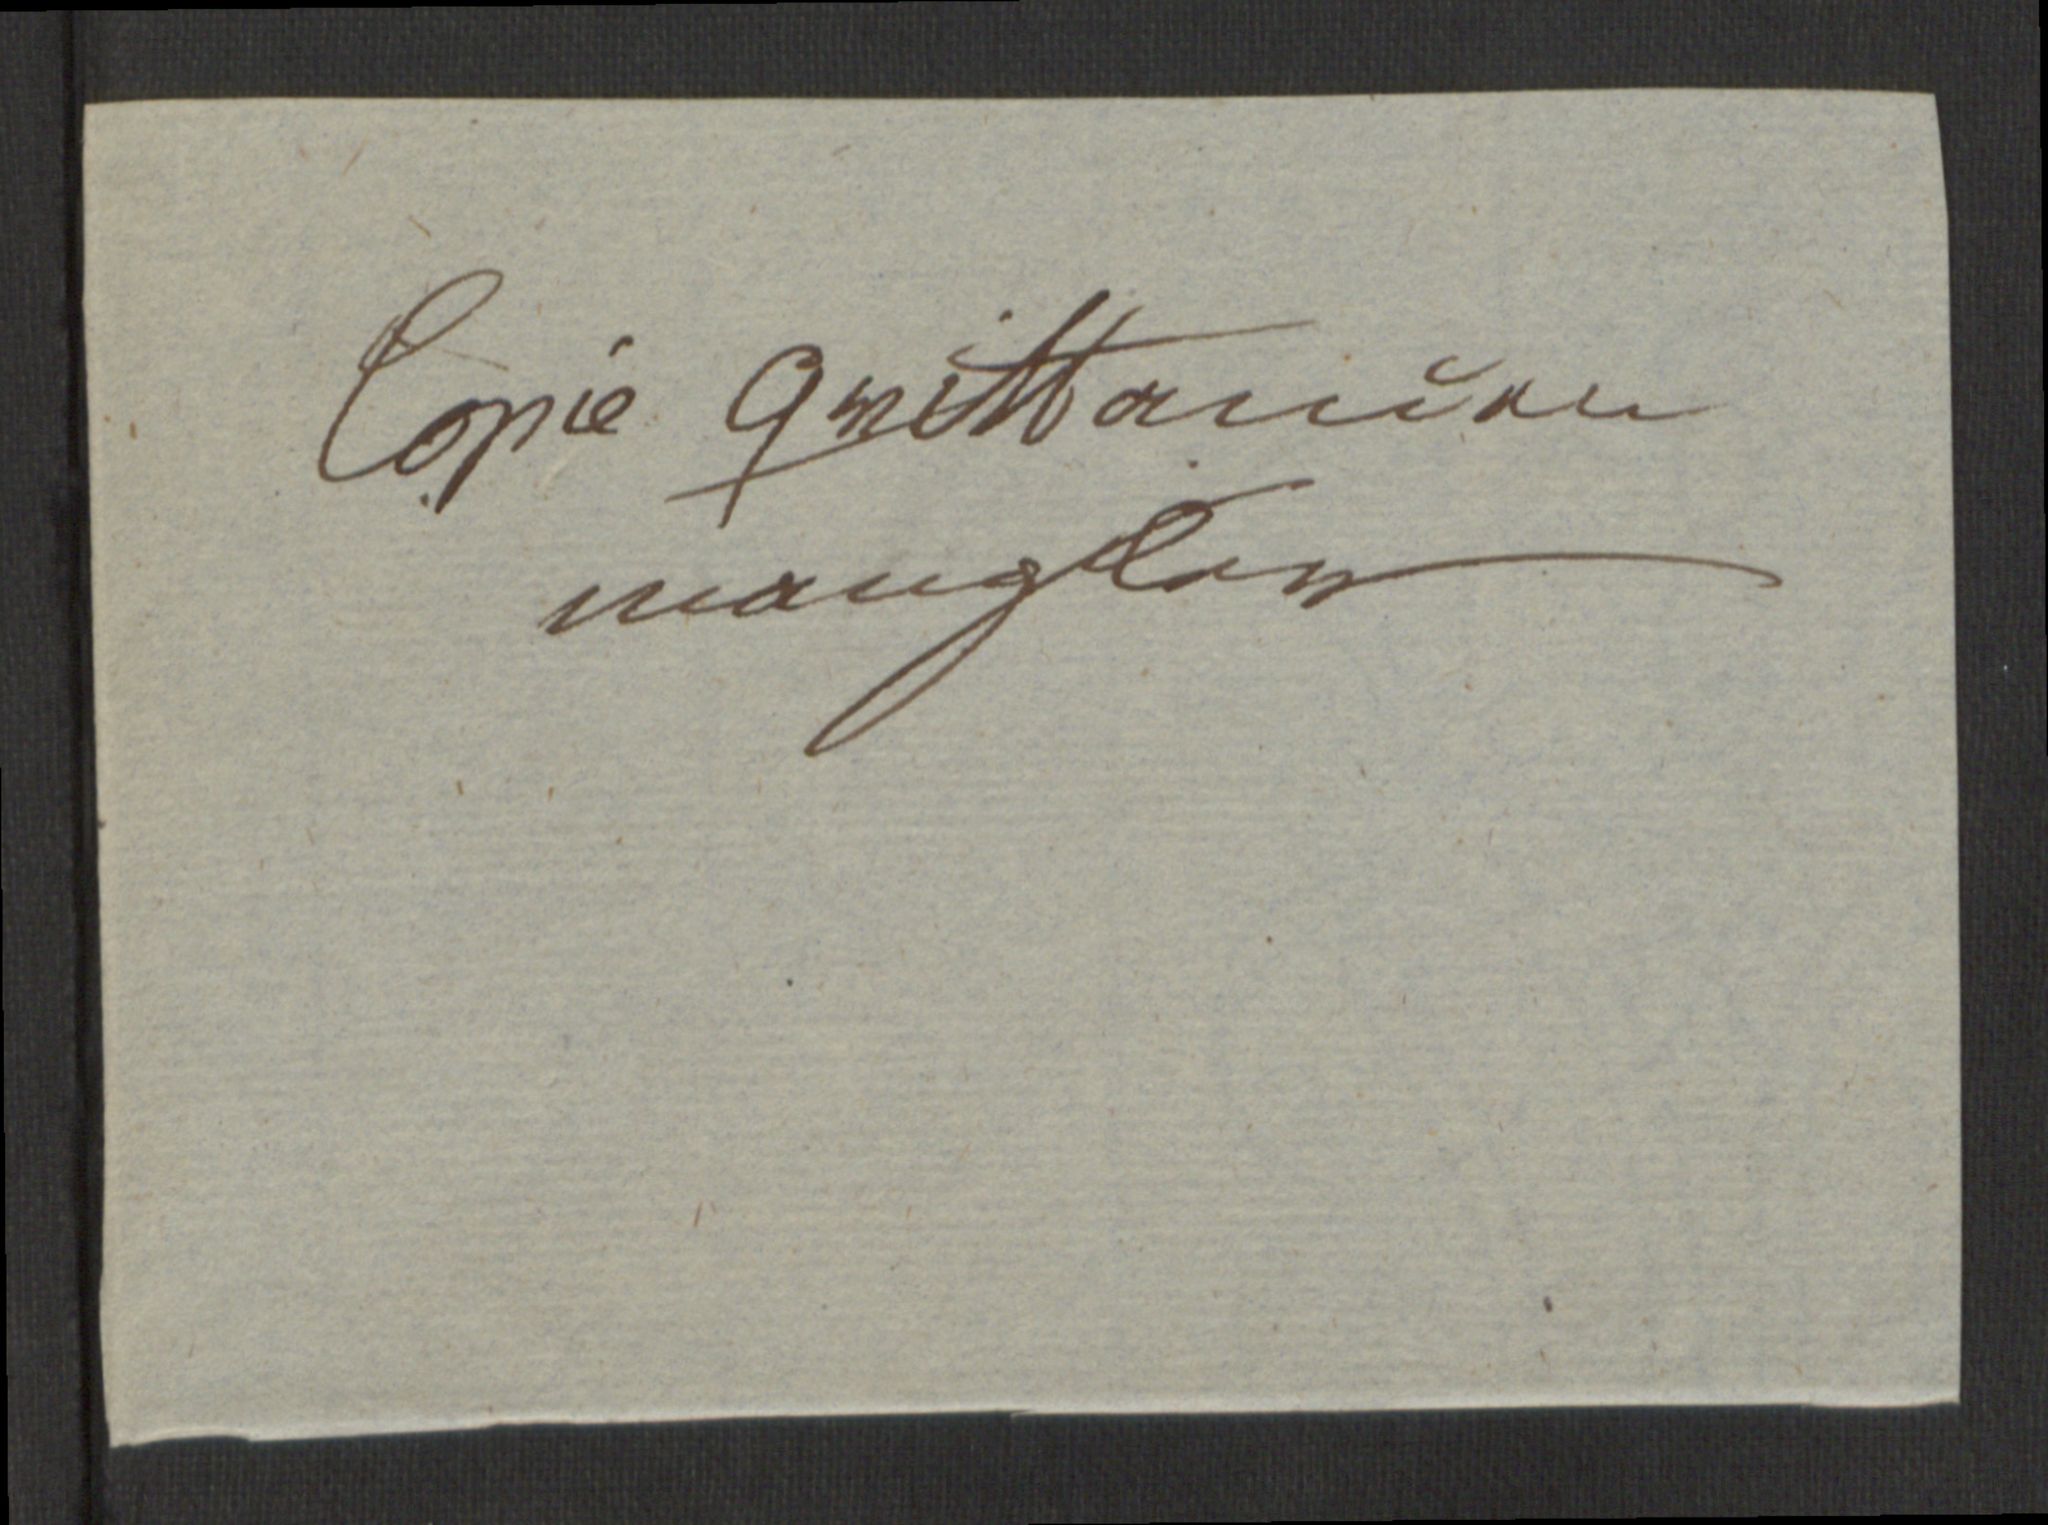 Copie Quittancien
mangler